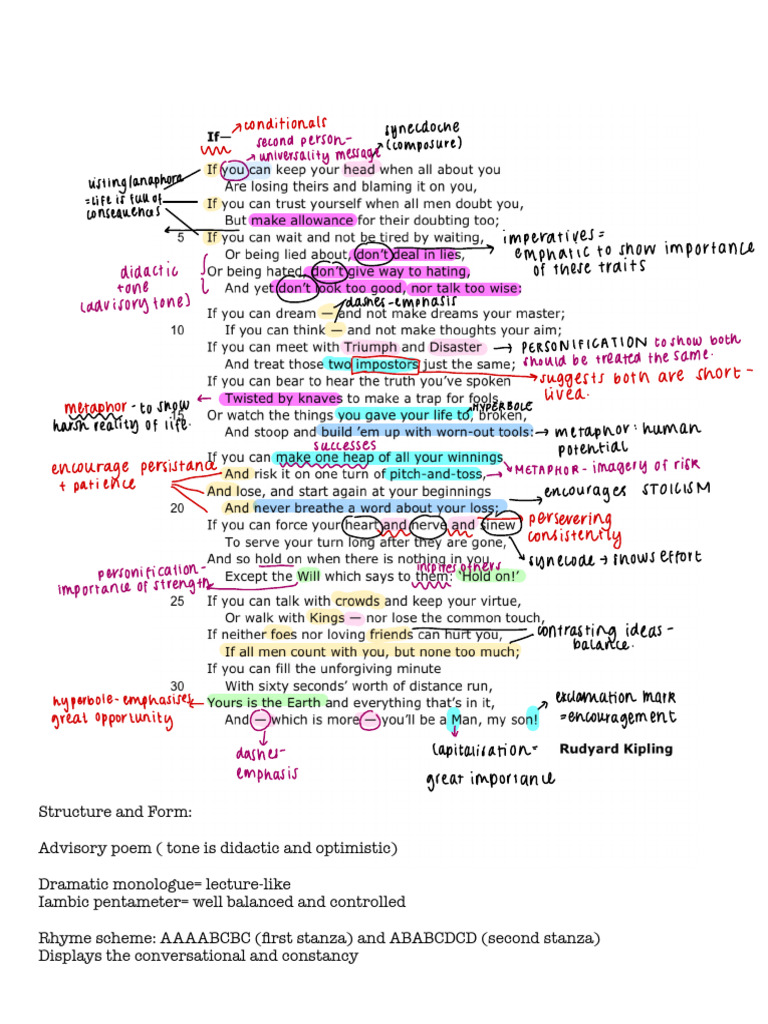 If—
conditionals
second person-
universality message
synecdoche
(composure)
listing/anaphora
=life is full of
consequences
If you can keep your head when all about you
Are losing theirs and blaming it on you,
If you can trust yourself when all men doubt you,
But make allowance for their doubting too;
5 If you can wait and not be tired by waiting,
Or being lied about, don't deal in lies,
Or being hated, don't give way to hating,
And yet don't look too good, nor talk too wise:
imperatives=
emphatic to show importance
of these traits
didactic
tone
(advisory tone)
dashes-emphasis
If you can dream — and not make dreams your master;
10 If you can think — and not make thoughts your aim;
If you can meet with Triumph and Disaster
And treat those two impostors just the same;
If you can bear to hear the truth you've spoken
Twisted by knaves to make a trap for fools,
15 Or watch the things you gave your life to, broken,
And stoop and build 'em up with worn-out tools:
PERSONIFICATION to show both
should be treated the same.
suggests both are short-
lived.
metaphor - to show
harsh reality of life.
HYPERBOLE
metaphor: human
potential
successes
If you can make one heap of all your winnings
And risk it on one turn of pitch-and-toss,
And lose, and start again at your beginnings
20 And never breathe a word about your loss;
If you can force your heart and nerve and sinew
To serve your turn long after they are gone,
And so hold on when there is nothing in you
Except the Will which says to them: 'Hold on!'
encourage persistance
+ patience
METAPHOR- imagery of risk
encourages STOICISM
persevering
consistently
synecode → shows effort
inspites others
personification-
importance of strength
25 If you can talk with crowds and keep your virtue,
Or walk with Kings — nor lose the common touch,
If neither foes nor loving friends can hurt you,
If all men count with you, but none too much;
If you can fill the unforgiving minute
30 With sixty seconds' worth of distance run,
Yours is the Earth and everything that's in it,
And — which is more — you'll be a Man, my son!
contrasting ideas-
balance.
hyperbole- emphasises
great opportunity
exclamation mark
=encouragement
dashes-
emphasis
capitalisation=
great importance
Rudyard Kipling
Structure and Form:
Advisory poem ( tone is didactic and optimistic)
Dramatic monologue= lecture-like
Iambic pentameter= well balanced and controlled
Rhyme scheme: AAAABCBC (first stanza) and ABABCDCD (second stanza)
Displays the conversational and constancy